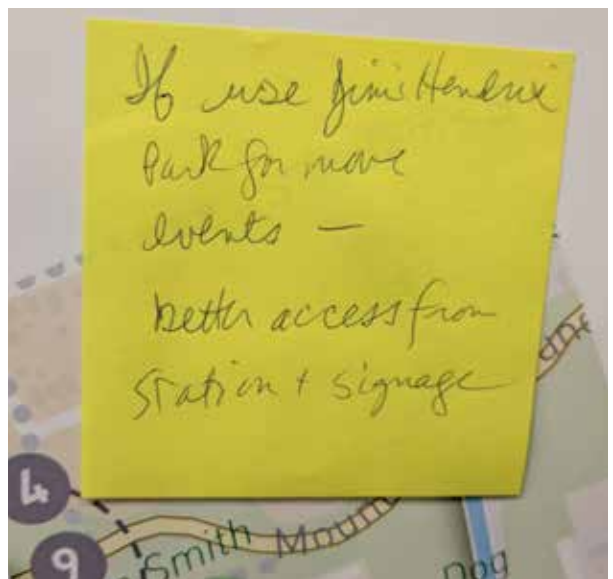 If use Jimi Hendrix
Park for more
events —
better access from
station + signage
4
9
Smith Mount
Dog